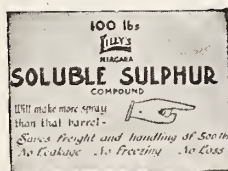 100 lbs
LILLY'S
NIAGARA
SOLUBLE SULPHUR
COMPOUND
Will make more spray
than that barrel-
Saves freight and handling of
No Leakage No Freezing No Loss